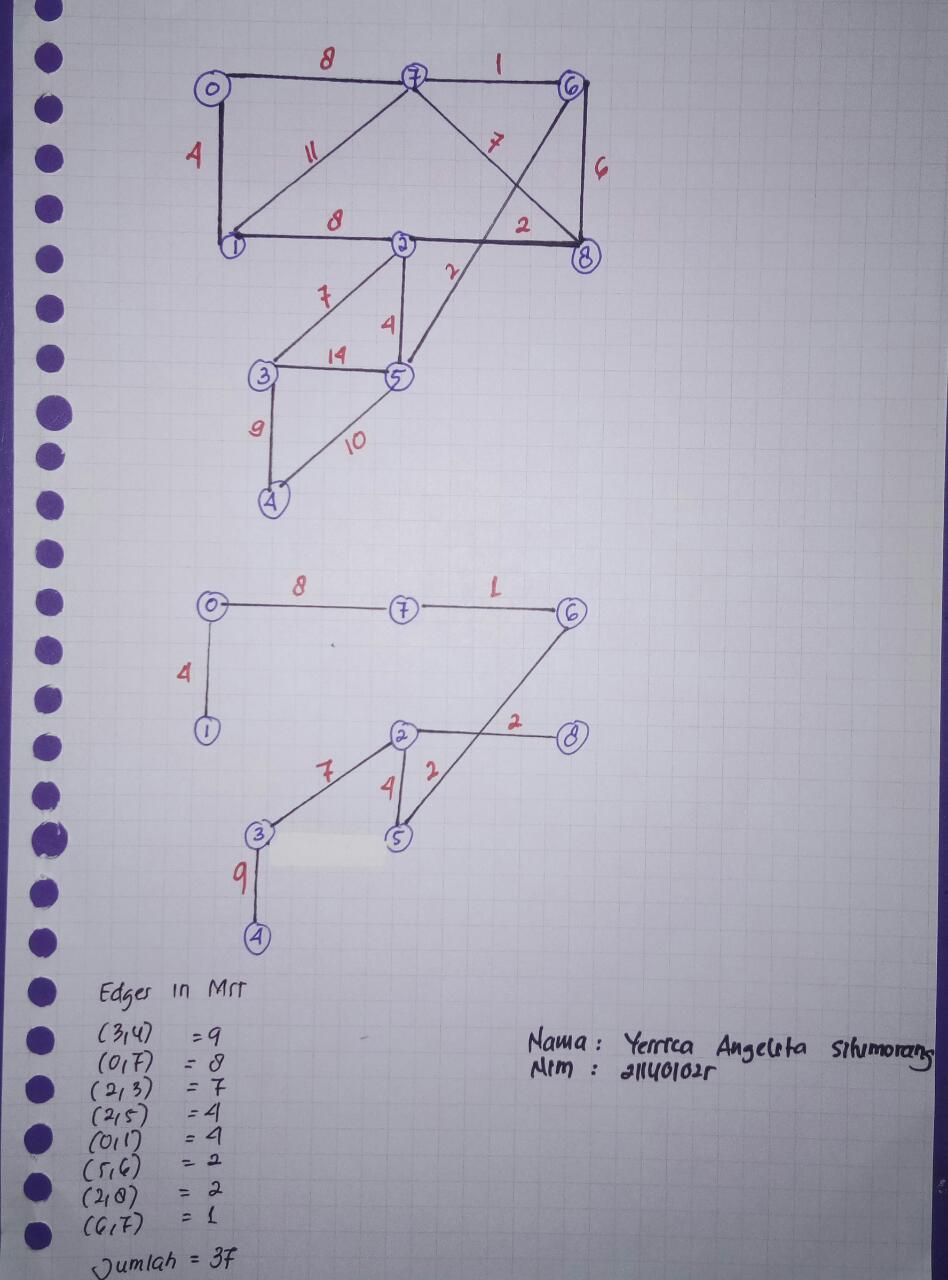 8 1
0 7 6
4 11 7 6
8 2
1 2 8
7 4 2
14
3 5
9 10
4
8 1
0 7 6
4
2
1 2 8
7 4 2
3 5
9
4
Edges in MST
(3,4) = 9
(0,7) = 8
(2,3) = 7
(2,5) = 4
(0,1) = 4
(5,6) = 2
(2,8) = 2
(6,7) = 1
Jumlah = 37
Nama : Yerrica Angelita Situmorang
Nim :